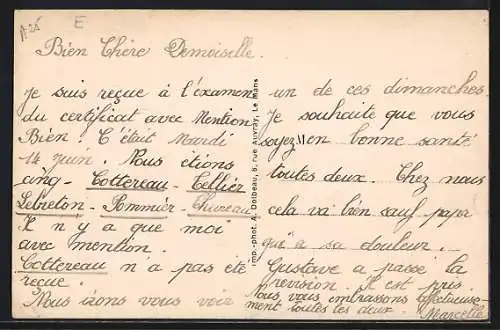 A-26
E
Bien Chère Demoiselle.
Je suis reçue à l'examen
du certificat avec Mention
Bien. C'était Mardi
14 Juin. Nous étions
cinq - Cottereau - Cellier
Lebreton - Pommier - Chureau
Il n'y a que moi
avec mention.
Cottereau n'a pas été
reçue.
Nous irons vous voir
Imp.-phot. A. Dolbeau, 6, rue Auvray, Le Mans
un de ces dimanches.
Je souhaite que vous
soyez en bonne santé
toutes deux. Chez nous
cela va bien sauf papa
qui a sa douleur.
Gustave a passé la
revision. Il est pris.
Nous vous embrassons affectueuse-
ment toutes les deux. Marcelle